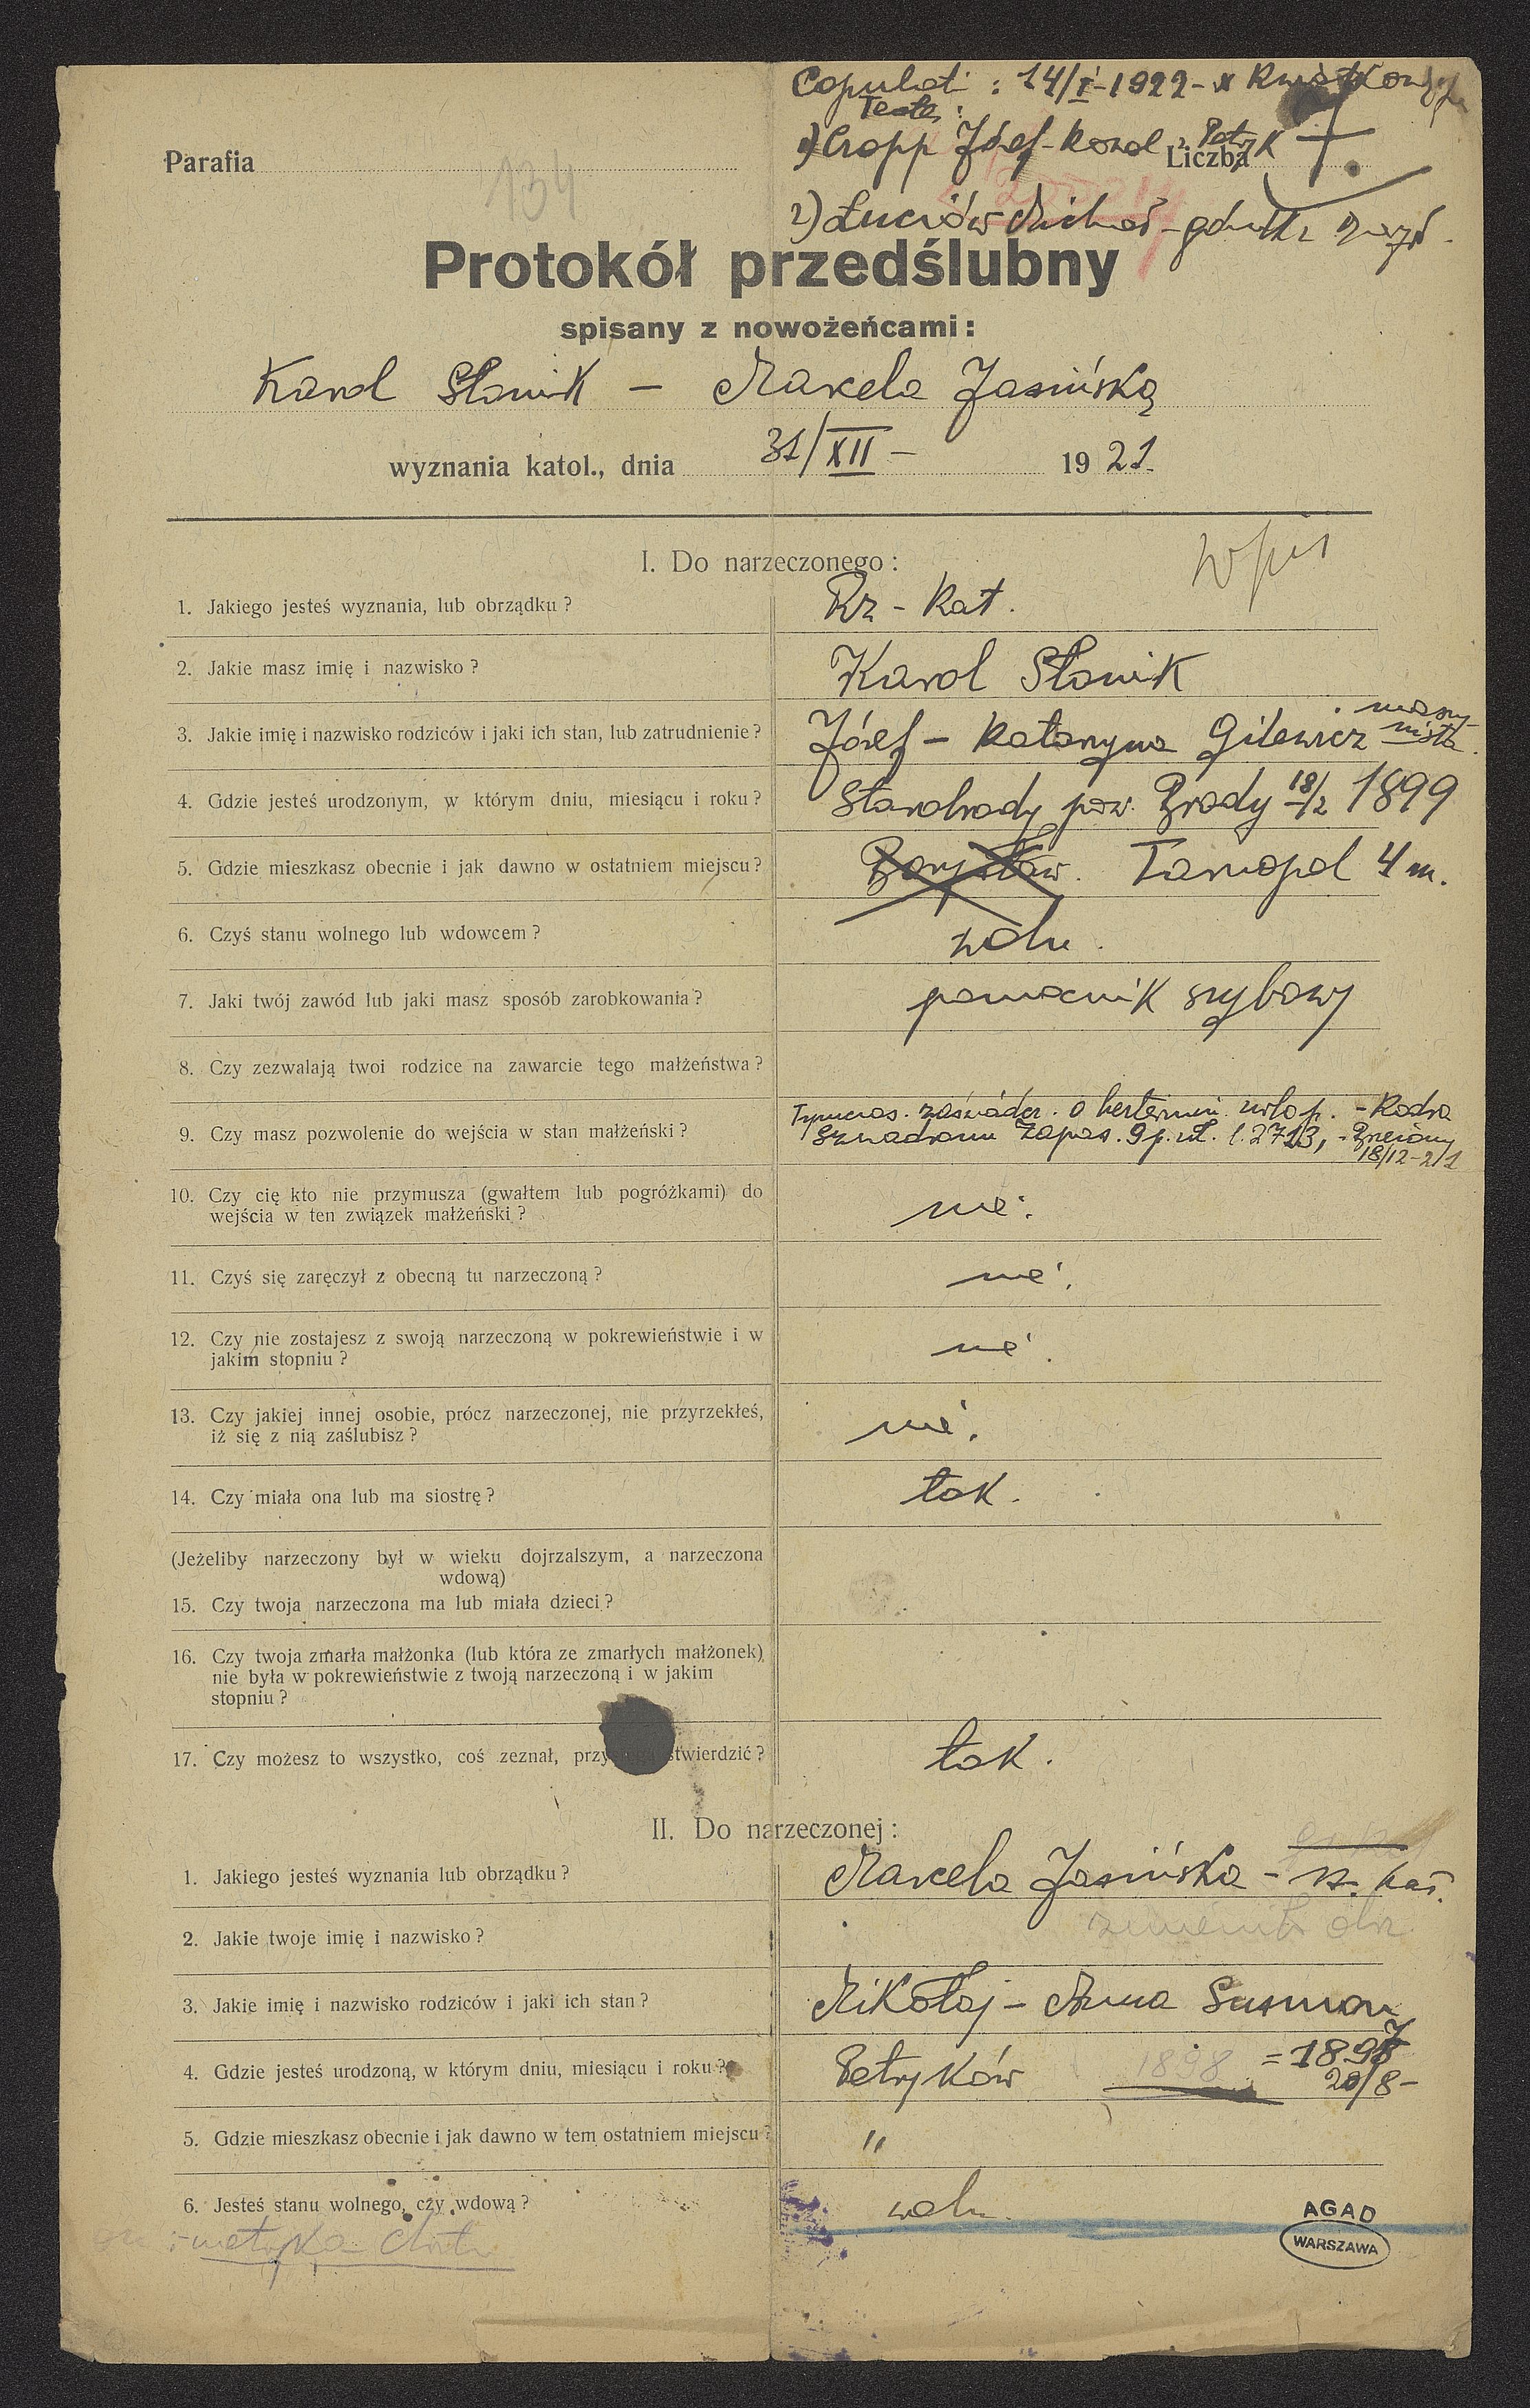 Copulati : 14/I-1922 - x Kwiatkowski
Testes :
1) Cropp Józef - kowal z Petryk
Parafia
Liczba 7.
134
2) Łuciów Michał -
Protokół przedślubny
spisany z nowożeńcami:
Karol Słowik — Marcela Jasińską
wyznania katol., dnia 31/XII — 19 21.
I. Do narzeczonego :
wpis
1. Jakiego jesteś wyznania, lub obrządku ? Rz - kat.
2. Jakie masz imię i nazwisko ? Karol Słowik
3. Jakie imię i nazwisko rodziców i jaki ich stan, lub zatrudnienie ? Józef — Katarzyna Gilewicz maszynista.
4. Gdzie jesteś urodzonym, w którym dniu, miesiącu i roku ? Starobrody pow. Brody 18/2 1899
5. Gdzie mieszkasz obecnie i jak dawno w ostatniem miejscu ? Borysław. Tarnopol 4 m.
6. Czyś stanu wolnego lub wdowcem ? woln.
7. Jaki twój zawód lub jaki masz sposób zarobkowania ? pomocnik szybowy
8. Czy zezwalają twoi rodzice na zawarcie tego małżeństwa ?
Tymczas. zaświadcz. o bezterminu. urlop. - Kadra
9. Czy masz pozwolenie do wejścia w stan małżeński ? Szwadronu Zapas. 9 p. uł. l. 2713, - Brzeżany
18/12-21
10. Czy cię kto nie przymusza (gwałtem lub pogróżkami) do
wejścia w ten związek małżeński ? nie.
11. Czyś się zaręczył z obecną tu narzeczoną ? nie.
12. Czy nie zostajesz z swoją narzeczoną w pokrewieństwie i w
jakim stopniu ? nie.
13. Czy jakiej innej osobie, prócz narzeczonej, nie przyrzekłeś,
iż się z nią zaślubisz ? nie.
14. Czy miała ona lub ma siostrę ? tak.
(Jeżeliby narzeczony był w wieku dojrzalszym, a narzeczona
wdową)
15. Czy twoja narzeczona ma lub miała dzieci ?
16. Czy twoja zmarła małżonka (lub która ze zmarłych małżonek)
nie była w pokrewieństwie z twoją narzeczoną i w jakim
stopniu ?
17. Czy możesz to wszystko, coś zeznał, przy stwierdzić ? tak.
II. Do narzeczonej :
1. Jakiego jesteś wyznania lub obrządku ? Marcela Jasińska - rz. kat.
2. Jakie twoje imię i nazwisko ?
3. Jakie imię i nazwisko rodziców i jaki ich stan ? Mikołaj — Anna Susman
4. Gdzie jesteś urodzoną, w którym dniu, miesiącu i roku ? Petryków 1898 = 1897
20/8 -
5. Gdzie mieszkasz obecnie i jak dawno w tem ostatniem miejscu ? "
6. Jesteś stanu wolnego, czy wdową ? woln.
metryka chrztu
AGAD
WARSZAWA